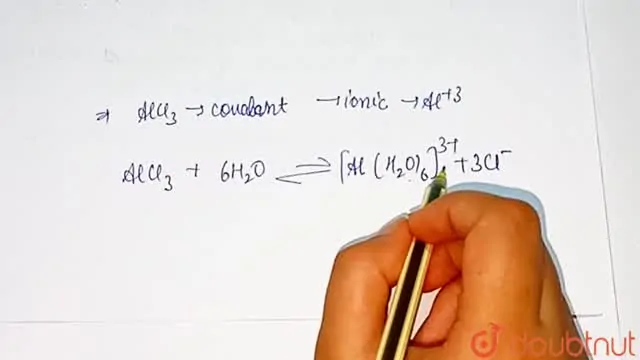 ⇒ AlCl₃ → covalent → ionic → Al⁺³
AlCl₃ + 6H₂O ⇌ [Al(H₂O)₆]³⁺ + 3Cl⁻
doubtnut